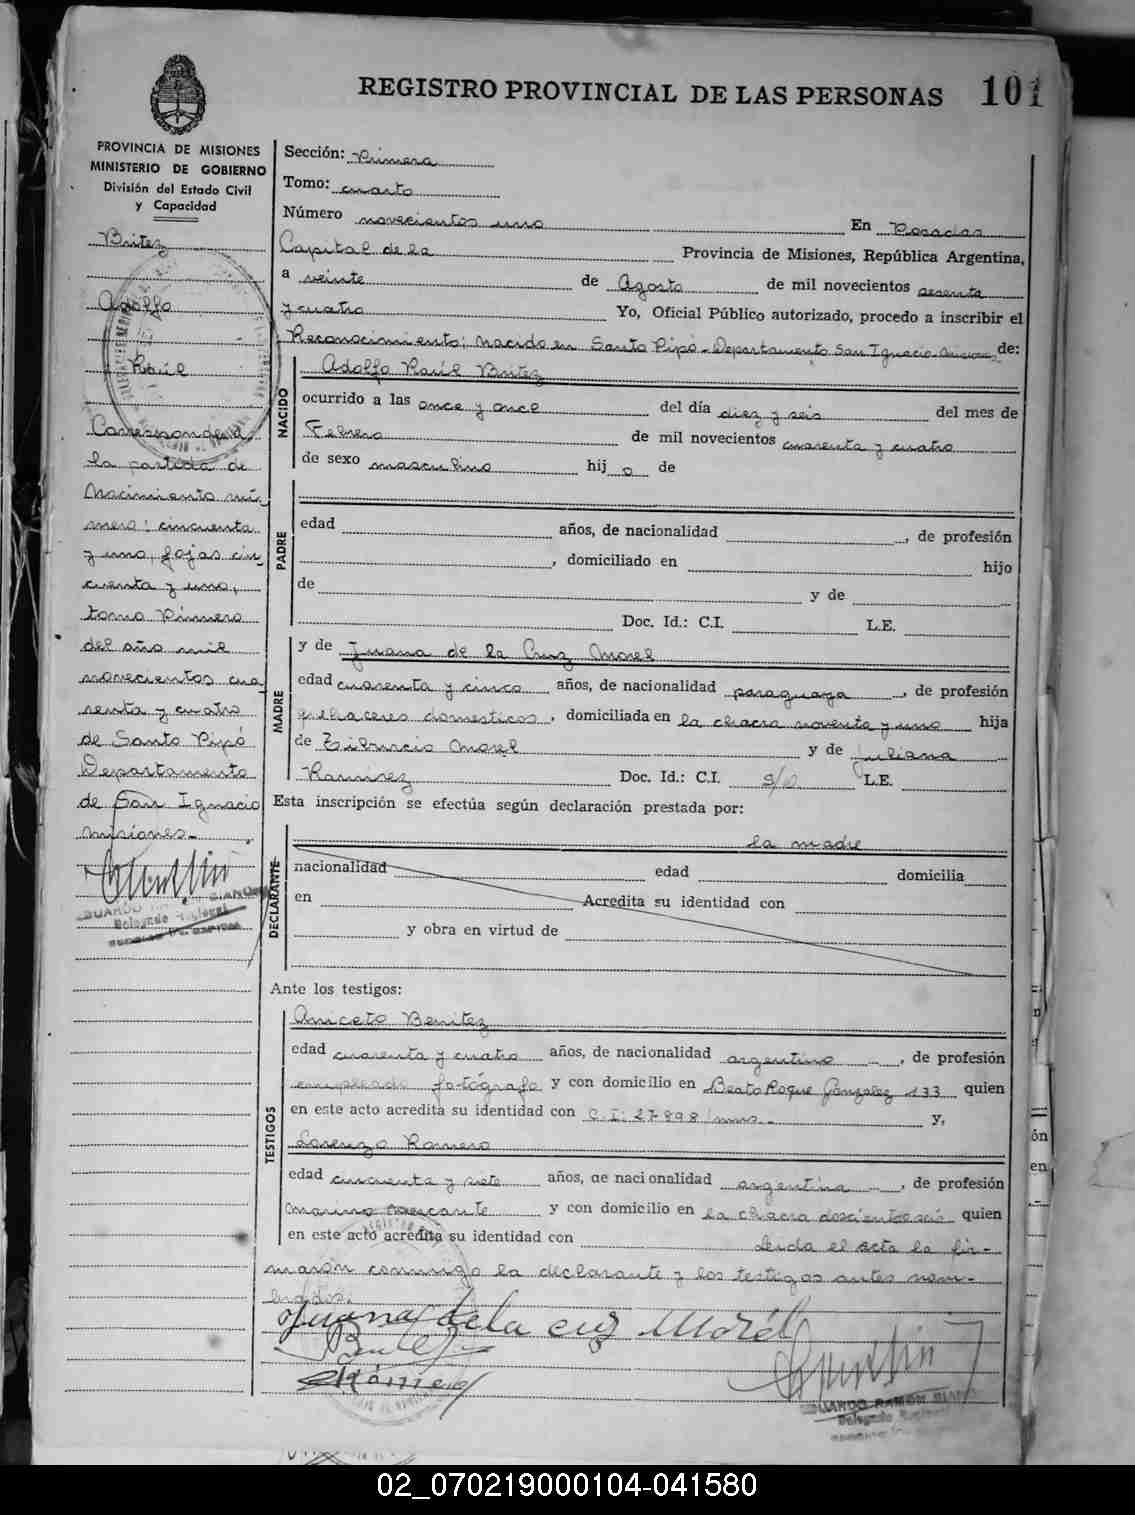 REGISTRO PROVINCIAL DE LAS PERSONAS 101
PROVINCIA DE MISIONES
MINISTERIO DE GOBIERNO
División del Estado Civil
y Capacidad
Britez
Adolfo
Raúl
Corresponde a
la partida de
Nacimiento nú-
mero: cincuenta
y uno, fojas cin-
cuenta y uno,
tomo Primero
del año mil
novecientos cua
renta y cuatro
de Santo Pipó
Departamento
de San Ignacio
Misiones.-
EDUARDO
Delegado Regional
Sección: Primera
Tomo: cuarto
Número novecientos uno En Posadas
Capital de la Provincia de Misiones, República Argentina,
a veinte de Agosto de mil novecientos sesenta
y cuatro Yo, Oficial Público autorizado, procedo a inscribir el
Reconocimiento; nacido en Santo Pipó - Departamento San Ignacio Misiones de:
NACIDO
Adolfo Raúl Britez
ocurrido a las once y once del día diez y seis del mes de
Febrero de mil novecientos cuarenta y cuatro
de sexo masculino hijo de
PADRE
edad años, de nacionalidad , de profesión
, domiciliado en hijo
de y de
Doc. Id.: C.I. L.E.
MADRE
y de Juana de la Cruz Morel
edad cuarenta y cinco años, de nacionalidad paraguaya , de profesión
quehaceres domesticos , domiciliada en la chacra noventa y uno hija
de Tiburcio Morel y de Juliana
Ramirez Doc. Id.: C.I. L.E.
Esta inscripción se efectúa según declaración prestada por:
la madre
DECLARANTE
nacionalidad edad domicilia
en Acredita su identidad con
y obra en virtud de
Ante los testigos:
TESTIGOS
Aniceto Benitez
edad cuarenta y cuatro años, de nacionalidad argentino , de profesión
empleado fotógrafo y con domicilio en Beato Roque Gonzalez 133 quien
en este acto acredita su identidad con C.I: 27898 y,
Lorenzo Romero
edad cincuenta y siete años, de nacionalidad argentina , de profesión
Marino mercante y con domicilio en la chacra doscientos seis quien
en este acto acredita su identidad con Leida el acta la fir-
marón conmigo la declarante y los testigos antes nom-
brados.
Juana de la cruz Morél
EDUARDO RAMON
Delegado Regional
02_070219000104-041580